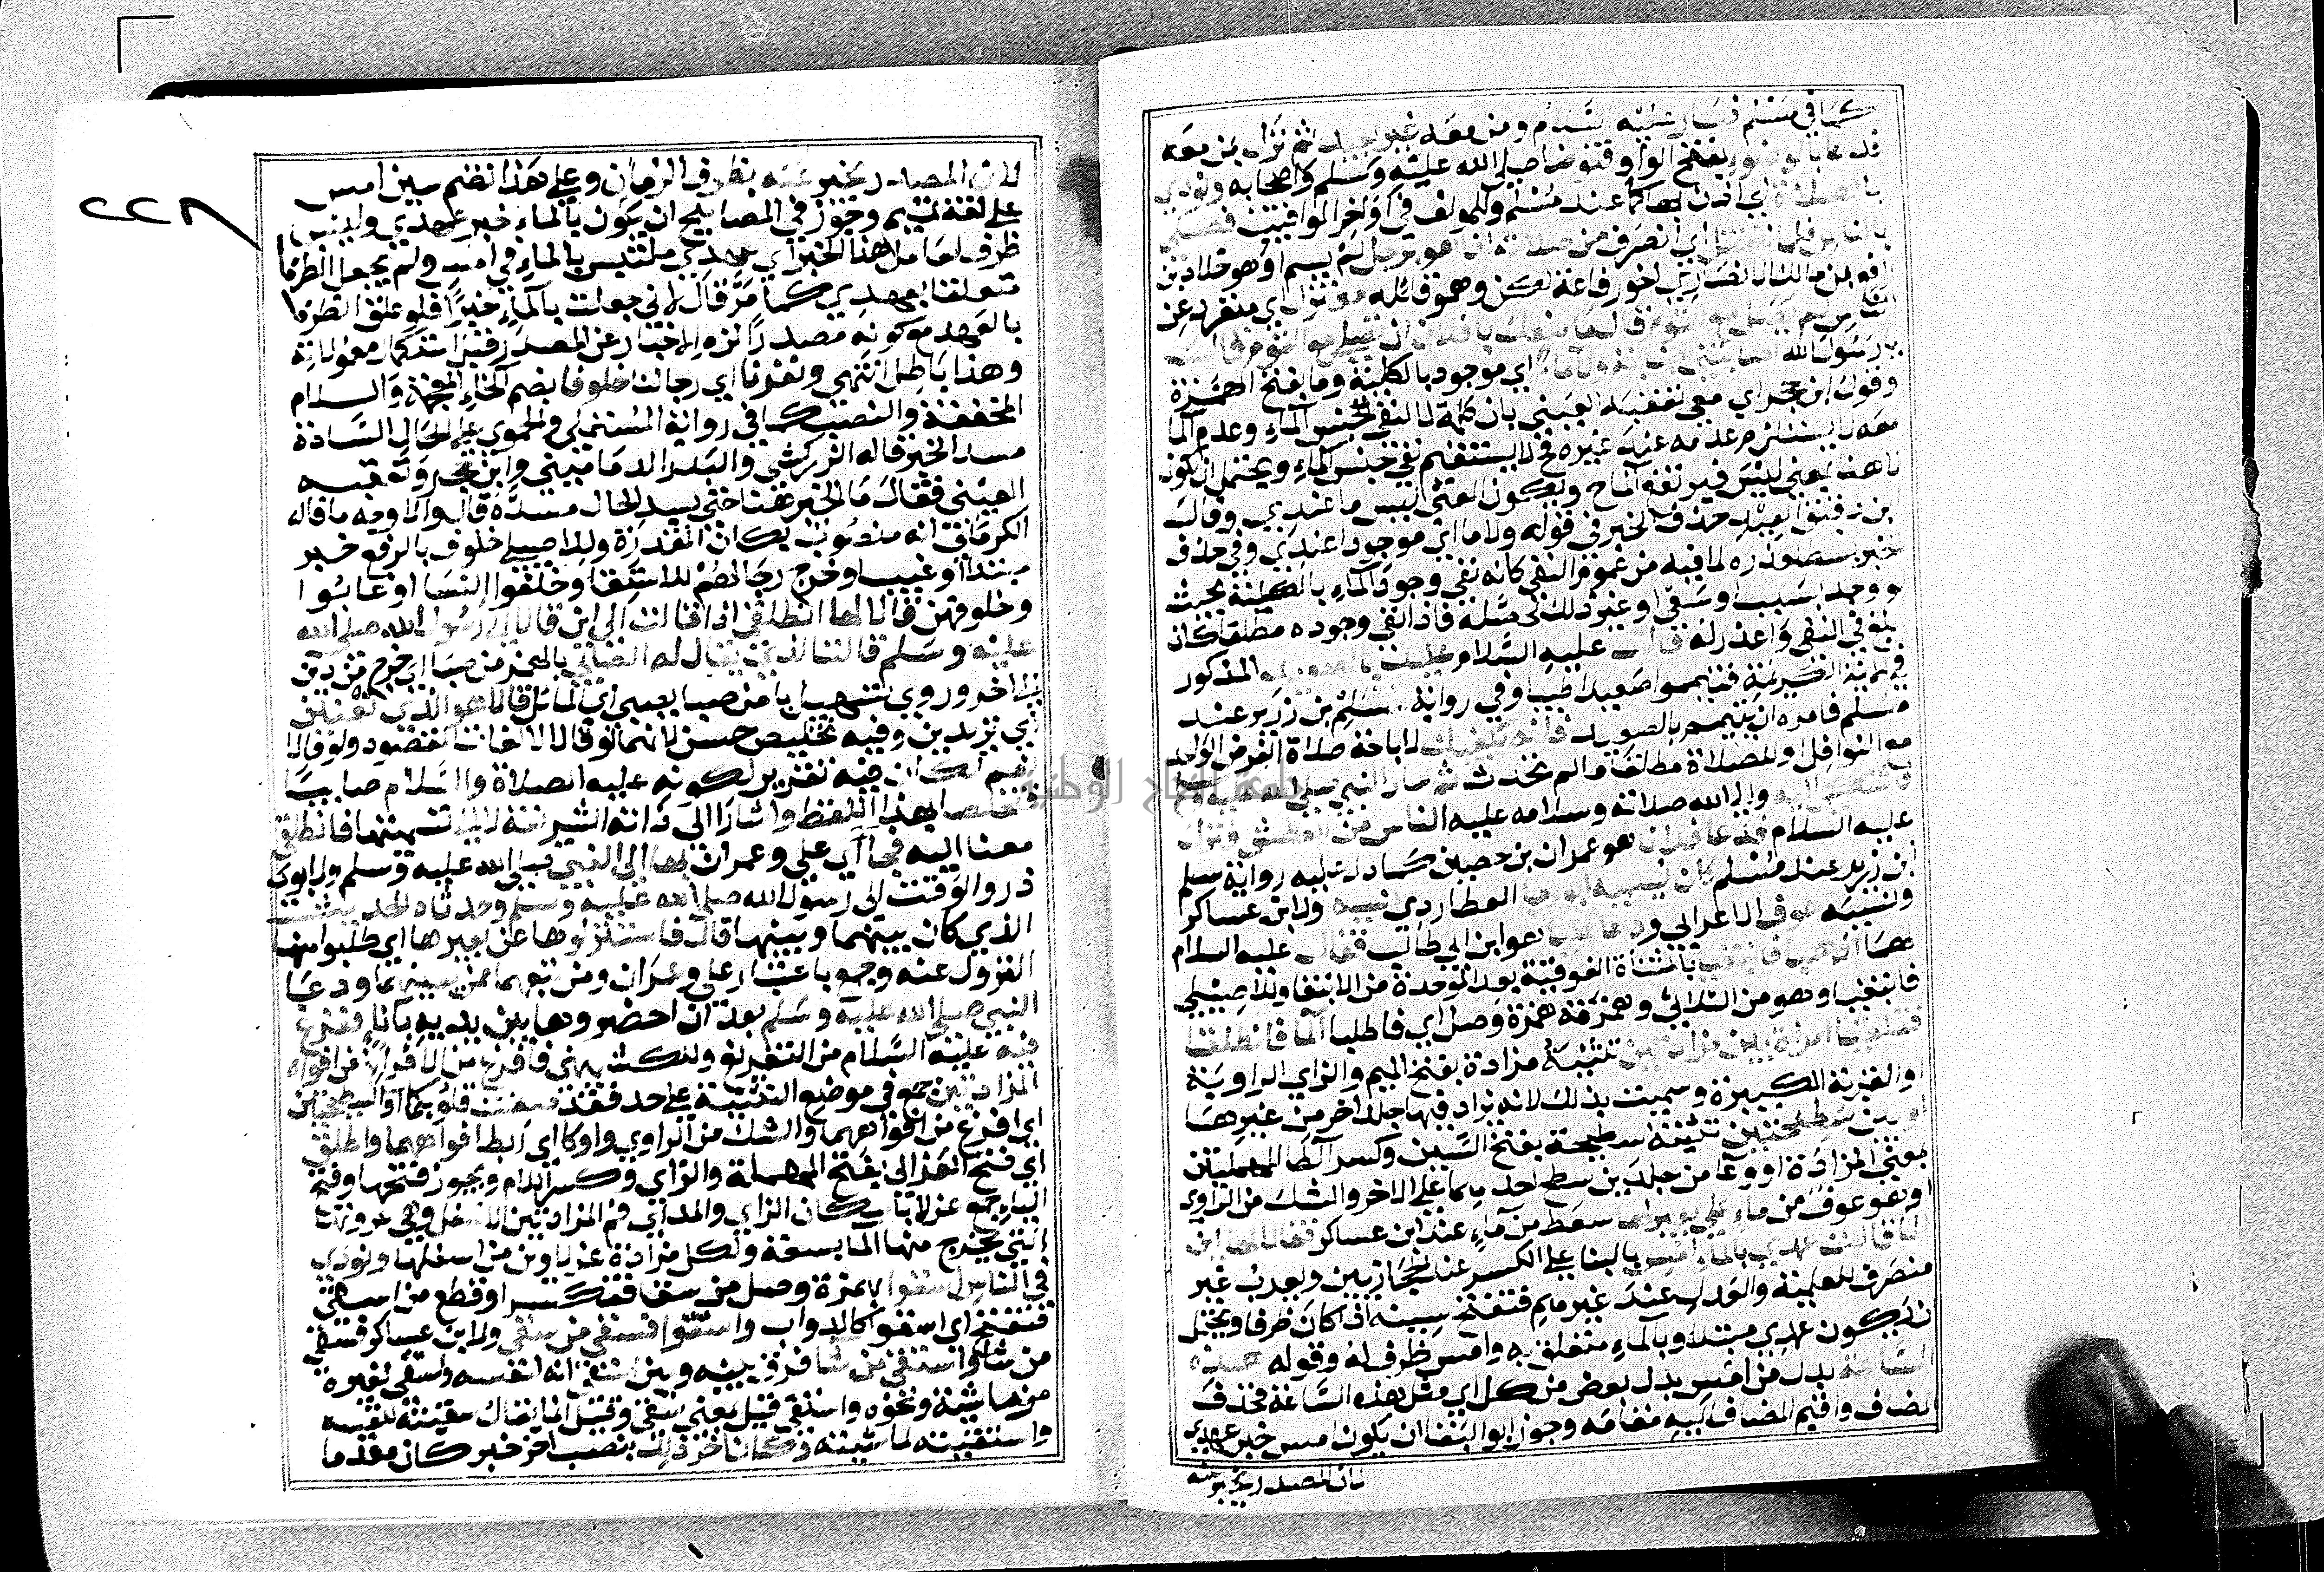 كما في مسلم فسار عليه السلام ومن معه غير بعيد ثم نزل بمن معه
فدعا بالوضوء بفتح الواو فتوضا صلى الله عليه وسلم واصحابه ونودي
بالصلاة اي اذن بها كما عند مسلم وللمولف في اواخر المواقيت فصلى
بالناس فلما انفتل اي انصرف من صلاته اذا هو برجل لم يسم او هو خلاد بن
رافع بن مالك الانصاري اخو رفاعة لكن وهموا قائله معتزل اي منفرد عن
الناس لم يصل مع القوم قال ما منعك يا فلان ان تصلي مع القوم قال
يا رسول الله اصابتني جنابة ولا ماء اي موجود بالكلية وما بفتح الهمزة
وقول ابن حجر اي معي تعقبه العيني بان كلمة لا لنفي الجنس الماء وعدم الماء
معه لا يستلزم عدمه عند غيره فح لا يستقيم نفي جنس الماء ويحتمل ان تكون
لا هنا بمعنى ليس فيرتفع الماء ح ويكون المعنى ليس ماء عندي وقال
ابن دقيق العيد حذف الخبر في قوله ولا ماء اي موجود عندي وفي حذف
الخبر بسط لعذره لما فيه من عموم النفي كانه نفي وجود الماء بالكلية بحيث
لو وجد بسبب او سعي او غير ذلك لحصله فاذا نفي وجوده مطلقا كان
ابلغ في النفي واعذر له قال عليه السلام عليك بالصعيد المذكور
في الاية الكريمة فتيمموا صعيدا طيبا وفي رواية سلم بن زرير عند
مسلم فامره ان يتيمم بالصعيد فانه يكفيك لاباحة صلاة الفرض الواحد
مع النوافل او للصلاة مطلقا ما لم تحدث ثم سار النبي صلى الله عليه وسلم
فاشتكى اليه والى الله صلاته وسلامه عليه الناس من العطش فنزل
عليه السلام فدعا فلانا هو عمران بن حصين كما دل عليه رواية سلم
ابن زرير عند مسلم كان يسميه ابو رجا العطاردي نسيه ولابن عساكر
ونسيه عوف الاعرابي ودعا عليا هو ابن ابي طالب فقال عليه السلام
لهما اذهبا فابتغيا بالمثناة الفوقية بعد الموحدة من الابتغا وللاصيلي
فابغيا وهو من الثلاثي وهمزته همزة وصل اي فاطلبا الماء فانطلقا
فتلقيا امراة بين مزادتين تثنية مزادة بفتح الميم والزاي الراوية
او القربة الكبيرة وسميت بذلك لانه يزاد فيها جلد اخر من غيرها
او بين سطيحتين تثنية سطيحة بفتح السين وكسر الطاء المهملتين
بمعنى المزادة او وعا من جلدين سطح احدهما على الاخر والشك من الراوي
وهو عوف من ماء على بعير لها سقط من ماء عند ابن عساكر فقالا لها اين
الماء قالت عهدي بالماء امس بالبناء على الكسر عند الحجازيين ويعرب غير
منصرف للعلمية والعدل عند غيرهم فتفتح سينه اذا كان ظرفا ويحتمل
ان يكون عهدي مبتدا وبالماء متعلق به وامس ظرف له وقوله هذه
الساعة بدل من امس بدل بعض من كل اي مثل هذه الساعة فحذف
المضاف واقيم المضاف اليه مقامه وجوز ابو البقا ان يكون امس خبر عهدي
لان المصدر يخبر عنه
٢٢٨
لان المصدر يخبر عنه بظرف الزمان وعلى هذا تضم سين امس
على لغة تميم وجوز في المصابيح ان يكون بالماء خبر عهدي وليس
ظرف لعامل هذا الخبر اي عهدي ملتبس بالماء في امس ولم يجعل الظرف
متعلقا بعهدي كما مر قال لاني جعلت بالماء خبرا فلو علق الظرف
بالعهد مع كونه مصدرا لزم الاخبار عن المصدر قبل استكمال معمولاته
وهذا باطل انتهى ونفرنا اي رجالنا خلوفا بضم الخاء المعجمة واللام
المخففة والنصب كما في رواية المستملي والحموي على الحال السادة
مسد الخبر قاله الزركشي والبدر الدماميني وابن حجر وتعقبه
العيني فقال ما الخبر هنا حتى يسد الحال مسده قال والاوجه ما قاله
الكرماني انه منصوب بكان المقدرة وللاصيلي خلوف بالرفع خبر
مبتدا او غيب او خرج رجالهم للاستقا وخلفوا النسا او غابوا
وخلفوهن قالا لها انطلقي اذا قالت الى اين قالا الى رسول الله صلى الله
عليه وسلم قالت الذي يقال له الصابي بالهمز من صبا اي خرج من دين
الى اخر وروي بتسهيله يا من صبا يصبي اي المائل قالا هو الذي تعنين
اي تريدين وفيه تخليص حسن لانهما لو قالا لا لفات المقصود ولو قالا
نعم لكان فيه تقرير لكونه عليه الصلاة والسلام صابيا
فتخلصا بهذا اللفظ واشارا الى ذاته الشريفة لا الى تسميتها فانطلقي
معنا اليه فجاآ اي علي وعمران بها الى النبي صلى الله عليه وسلم ولابوي
ذر والوقت الى رسول الله صلى الله عليه وسلم وحدثاه الحديث
الذي كان بينهما وبينها قال فاستنزلوها عن بعيرها اي طلبوا منها
النزول عنه وجمع باعتبار علي وعمران ومن تبعهما ممن يعينهما ودعا
النبي صلى الله عليه وسلم بعد ان احضروها بين يديه باناء ففرغ
فيه عليه السلام من التفريغ وللكشميهني فافرغ من الافراغ من افواه
المزادتين جمع في موضع التثنية على حد فقد صغت قلوبكما او السطيحتين
اي افرغ من افواههما والشك من الراوي واوكا اي ربط افواههما واطلق
اي فتح العزالي بفتح المهملة والزاي وكسر اللام ويجوز فتحها وفتح
الياء جمع عزلا باسكان الزاي والمد اي فم المزادتين الاسفل وهي عروتها
التي يخرج منها الماء بسعة ولكل مزادة عزلاوين من اسفلها ونودي
في الناس اسقوا بهمزة وصل من سقا فتكسر او قطع من اسقى
فتفتح اي اسقوا كالدواب واستقوا فسقى من سقى ولابن عساكر فسقى
من شا واستقى من شا فرق بينه وبين استقى انه لنفسه وسقى لغيره
من ماشية ونحوه واستقى قيل بمعنى سقى وقيل انما يقال سقيته لنفسه
واستقيته لماشيته وكان اخر ذلك بنصب اخر خبر كان مقدما